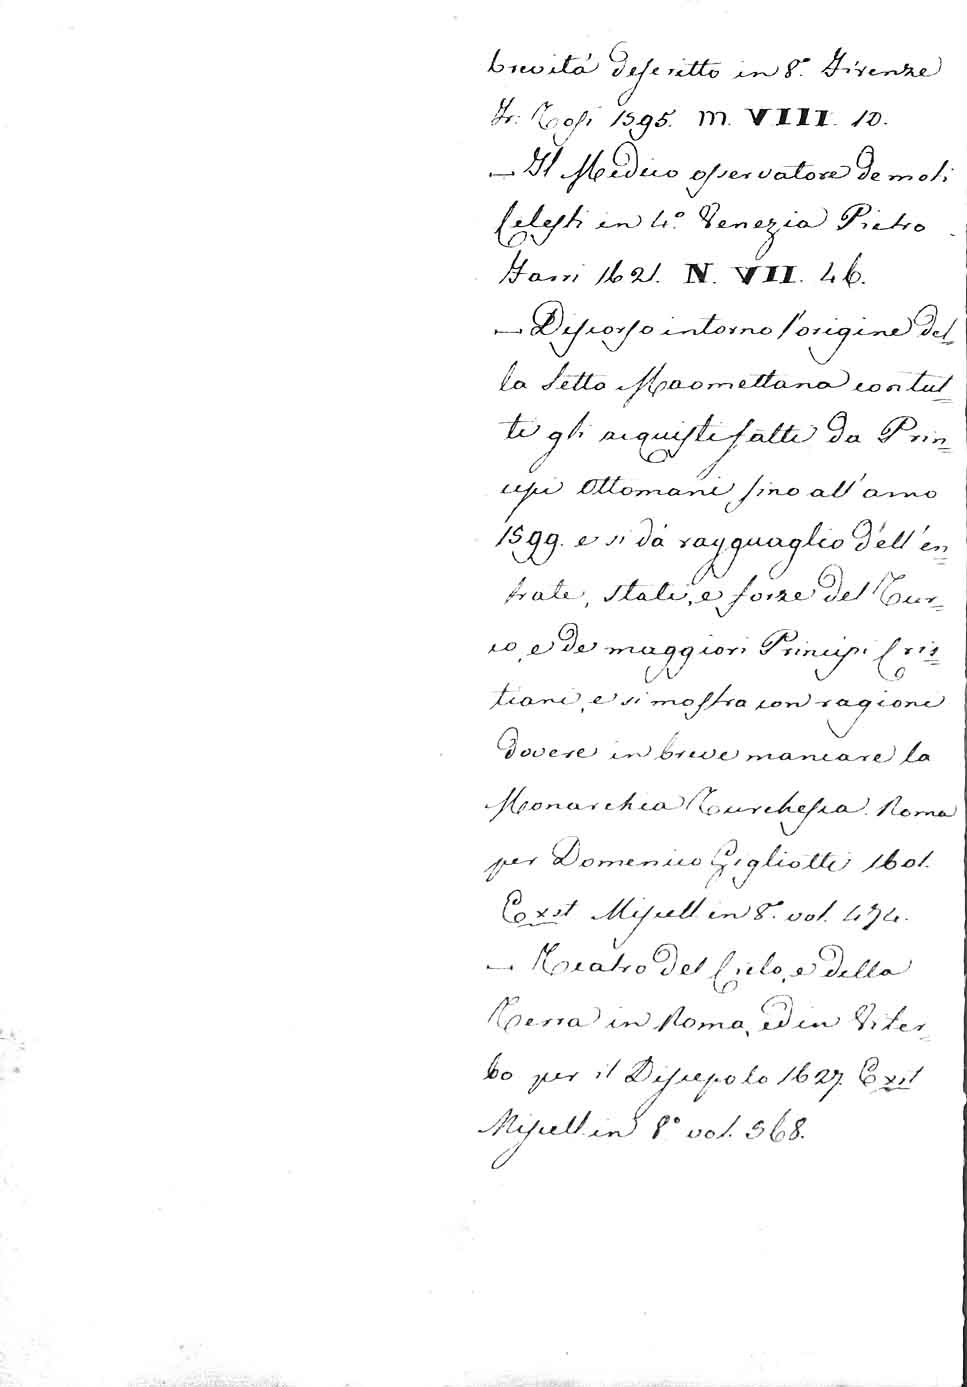 brevità descritto in 8.° Firenze
Fr. Tosi 1595. m. VIII. 10.
— Il Medico osservatore de moti
Celesti in 4.° Venezia Pietro
Farri 1621. N. VII. 46.
— Discorso intorno l'origine del=
la Setta Maomettana con tut=
ti gli acquisti fatti da Prin=
cipi Ottomani sino all'anno
1599. e si dà ragguaglio dell'en=
trate, stati, e forze del Tur=
co, e de maggiori Principi Cris=
tiani, e si mostra con ragioni
dovere in breve mancare la
Monarchia Turchesca. Roma
per Domenico Gigliotti 1601.
Exst Miscell in 8.° vol. 474.
— Teatro del Cielo, e della
Terra in Roma, ed in Viter=
bo per il Discepolo 1627. Exst
Miscell. in 8.° vol. 368.